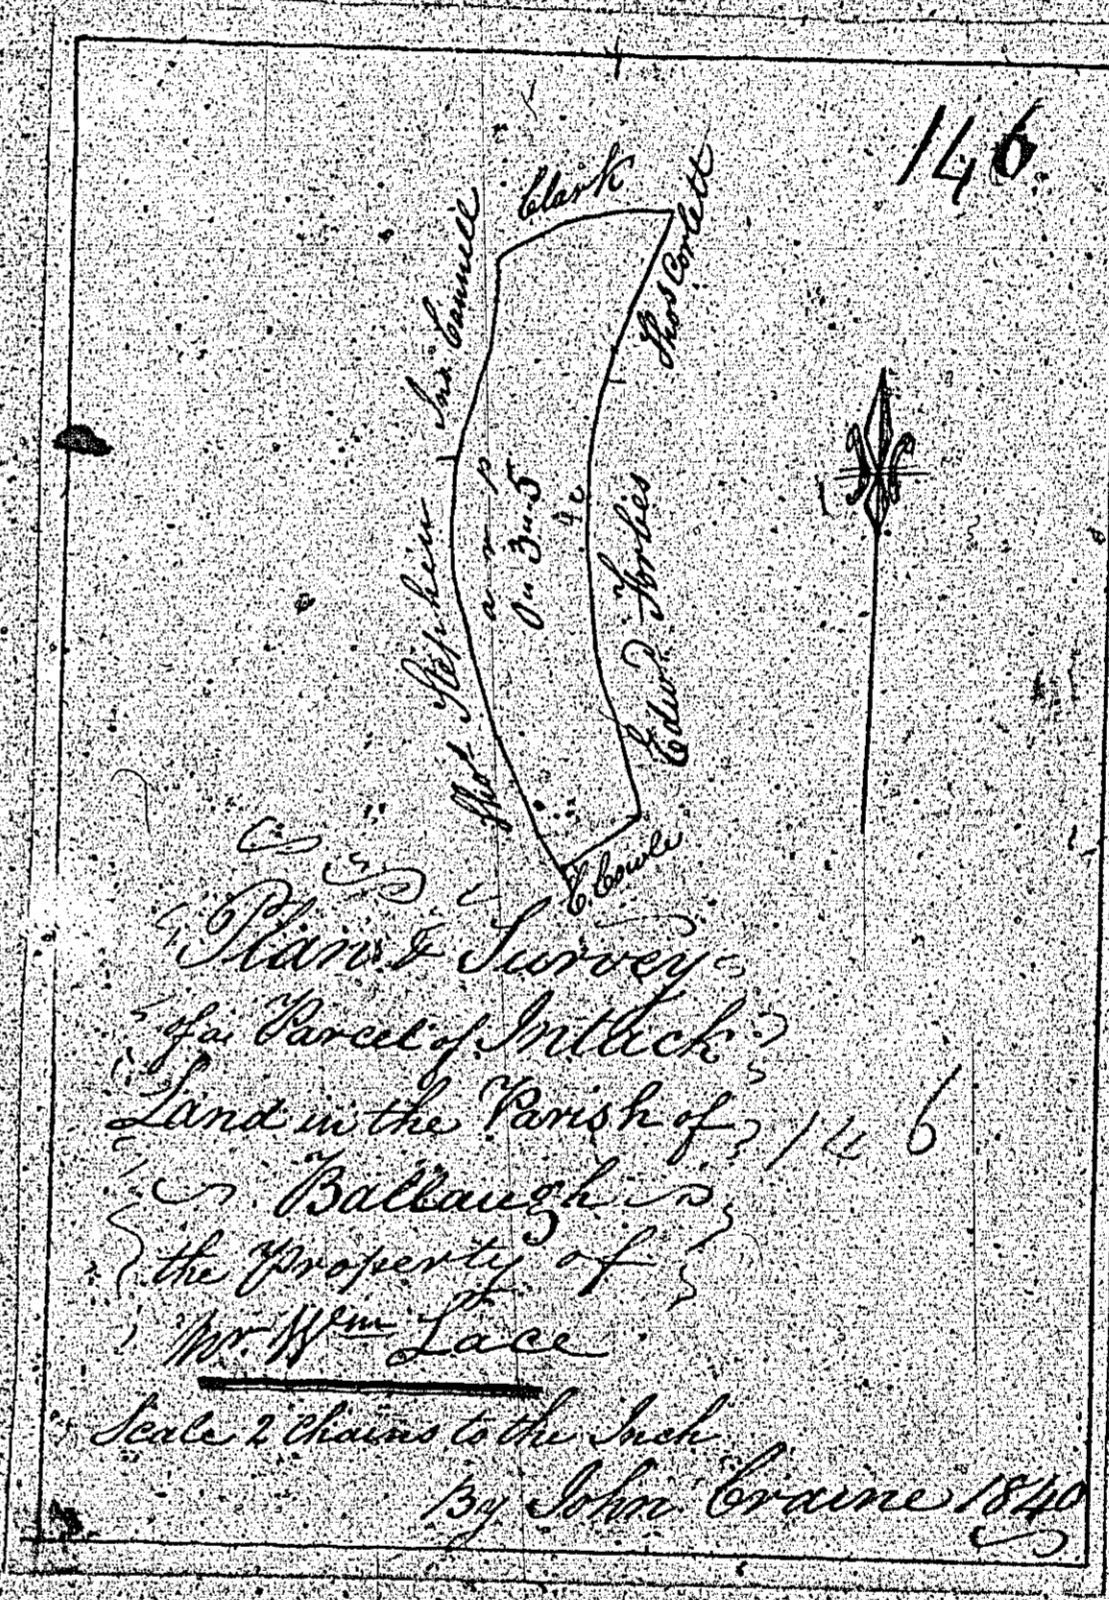 146
Clark
Jno. Cannell
Thos Corlett
a r p
0 " 3 " 5
Thos Stephen
Edwd Forbes
C Cowle
Plan & Survey
of a Parcel of Intack
Land in the Parish of
146
Ballaugh
the Property of
Mr. Wm Lace
Scale 2 Chains to the Inch
By John Craine 1840